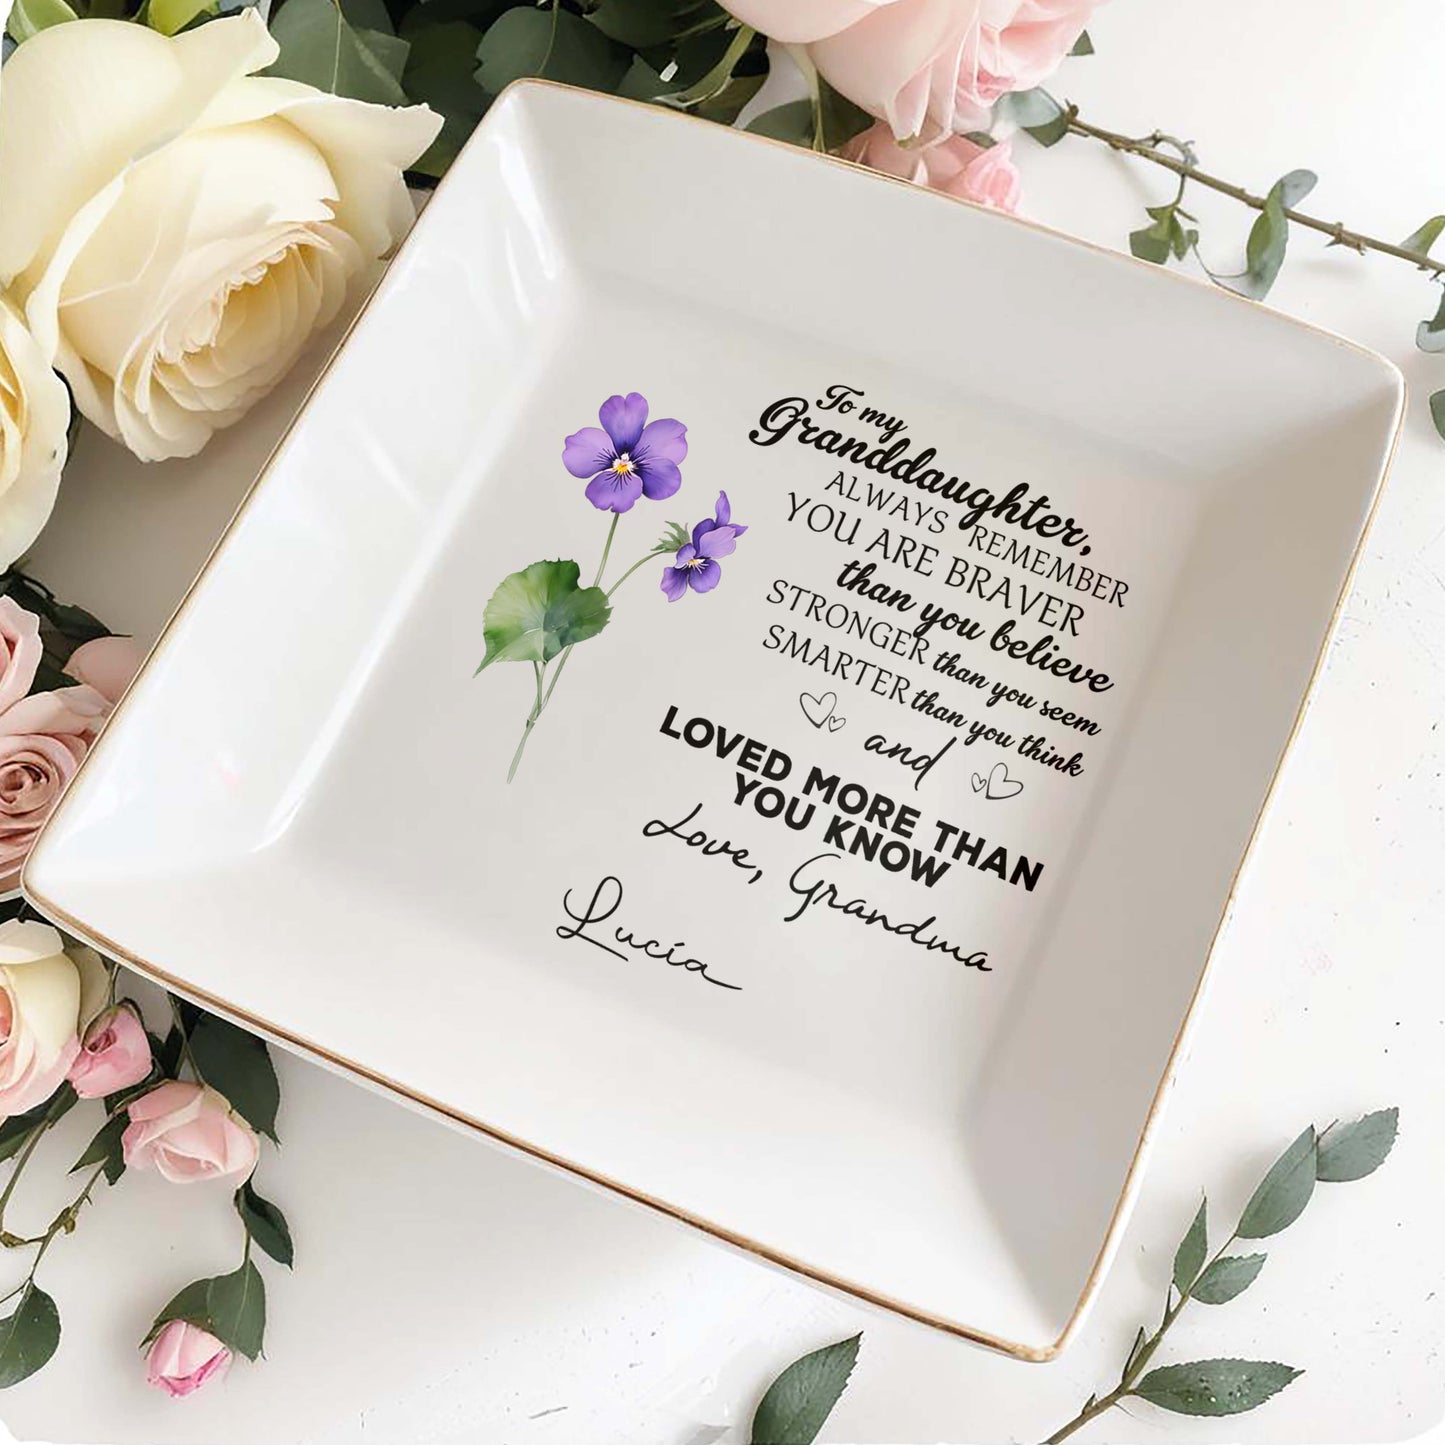 To my
Granddaughter,
ALWAYS REMEMBER
YOU ARE BRAVER
than you believe
STRONGER than you seem
SMARTER than you think
and
LOVED MORE THAN
YOU KNOW
Love, Grandma
Lucía